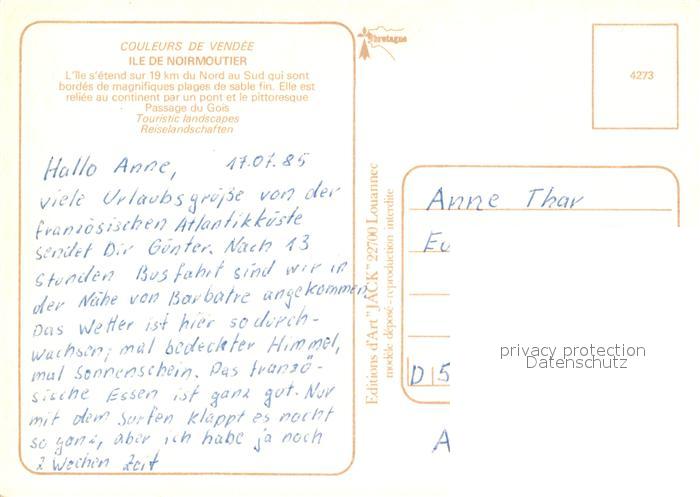 COULEURS DE VENDÉE
ILE DE NOIRMOUTIER
L'île s'étend sur 19 km du Nord au Sud qui sont
bordés de magnifiques plages de sable fin. Elle est
reliée au continent par un pont et le pittoresque
Passage du Gois
Touristic landscapes
Reiselandschaften
Hallo Anne, 17.07.85
viele Urlaubsgrüße von der
französischen Atlantikküste
sendet Dir Günter. Nach 13
stunden Busfahrt sind wir in
der Nähe von Barbatre angekommen.
Das Wetter ist hier so durch-
wachsen; mal bedeckter Himmel,
mal Sonnenschein. Das franzö-
sische Essen ist ganz gut. Nur
mit dem Surfen klappt es nocht
so ganz, aber ich habe ja noch
2 Wochen Zeit
Editions d'Art "JACK" 22700 Louannec
modèle déposé - reproduction interdite
bretagne
4273
Anne Thar
Eu
D 5
A
privacy protection
Datenschutz